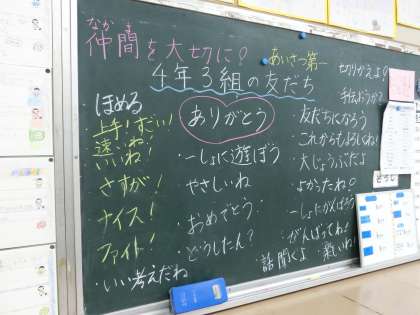 なかま
仲間を大切に?
あいさつ第一
切りかえよ?
4年3組の友だち
手伝おうか?
ほめる
上手!すごい!
速いね!
いいね!
さすが!
ナイス!
ファイト!
・いい考えだね
ありがとう
・一しょに遊ぼう
・やさしいね
・おめでとう
・どうしたん?
・友だちになろう
・これからもよろしくね!
・大じょうぶだよ
・よかったね。
・一しょにがんばろう
・がんばってね!
・話聞くよ